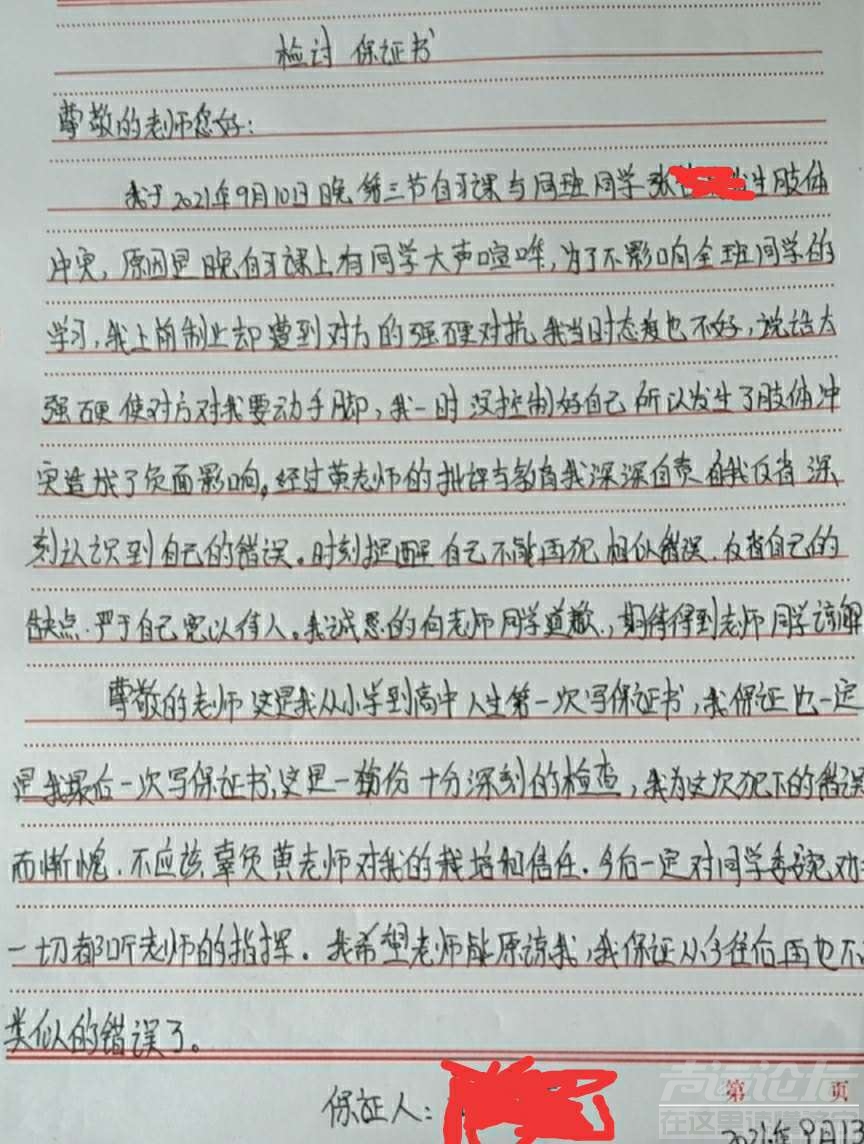 检讨 保证书
尊敬的老师您好:
我于2021年9月10日晚第三节自习课与同班同学张 发生肢体
冲突，原因是晚自习课上有同学大声喧哗，为了不影响全班同学的
学习，我上前制止却遭到对方的强硬对抗，我当时态度也不好，说话太
强硬使对方对我要动手脚，我一时没控制好自己所以发生了肢体冲
突造成了负面影响。经过黄老师的批评与教育我深深自责自我反省深
刻认识到自己的错误。时刻提醒自己不能再犯相似错误.反省自己的
缺点.严于自己宽以待人。我诚恳的向老师同学道歉,期待得到老师同学谅解
尊敬的老师这是我从小学到高中人生第一次写保证书,我保证也一定
是我最后一次写保证书,这是一份十分深刻的检查,我为这次犯下的错误
而惭愧.不应该辜负黄老师对我的栽培和信任.今后一定对同学委婉劝
一切都听老师的指挥。我希望老师能原谅我,我保证从今往后再也不
类似的错误了。
保证人:
第 页
2021年9月13